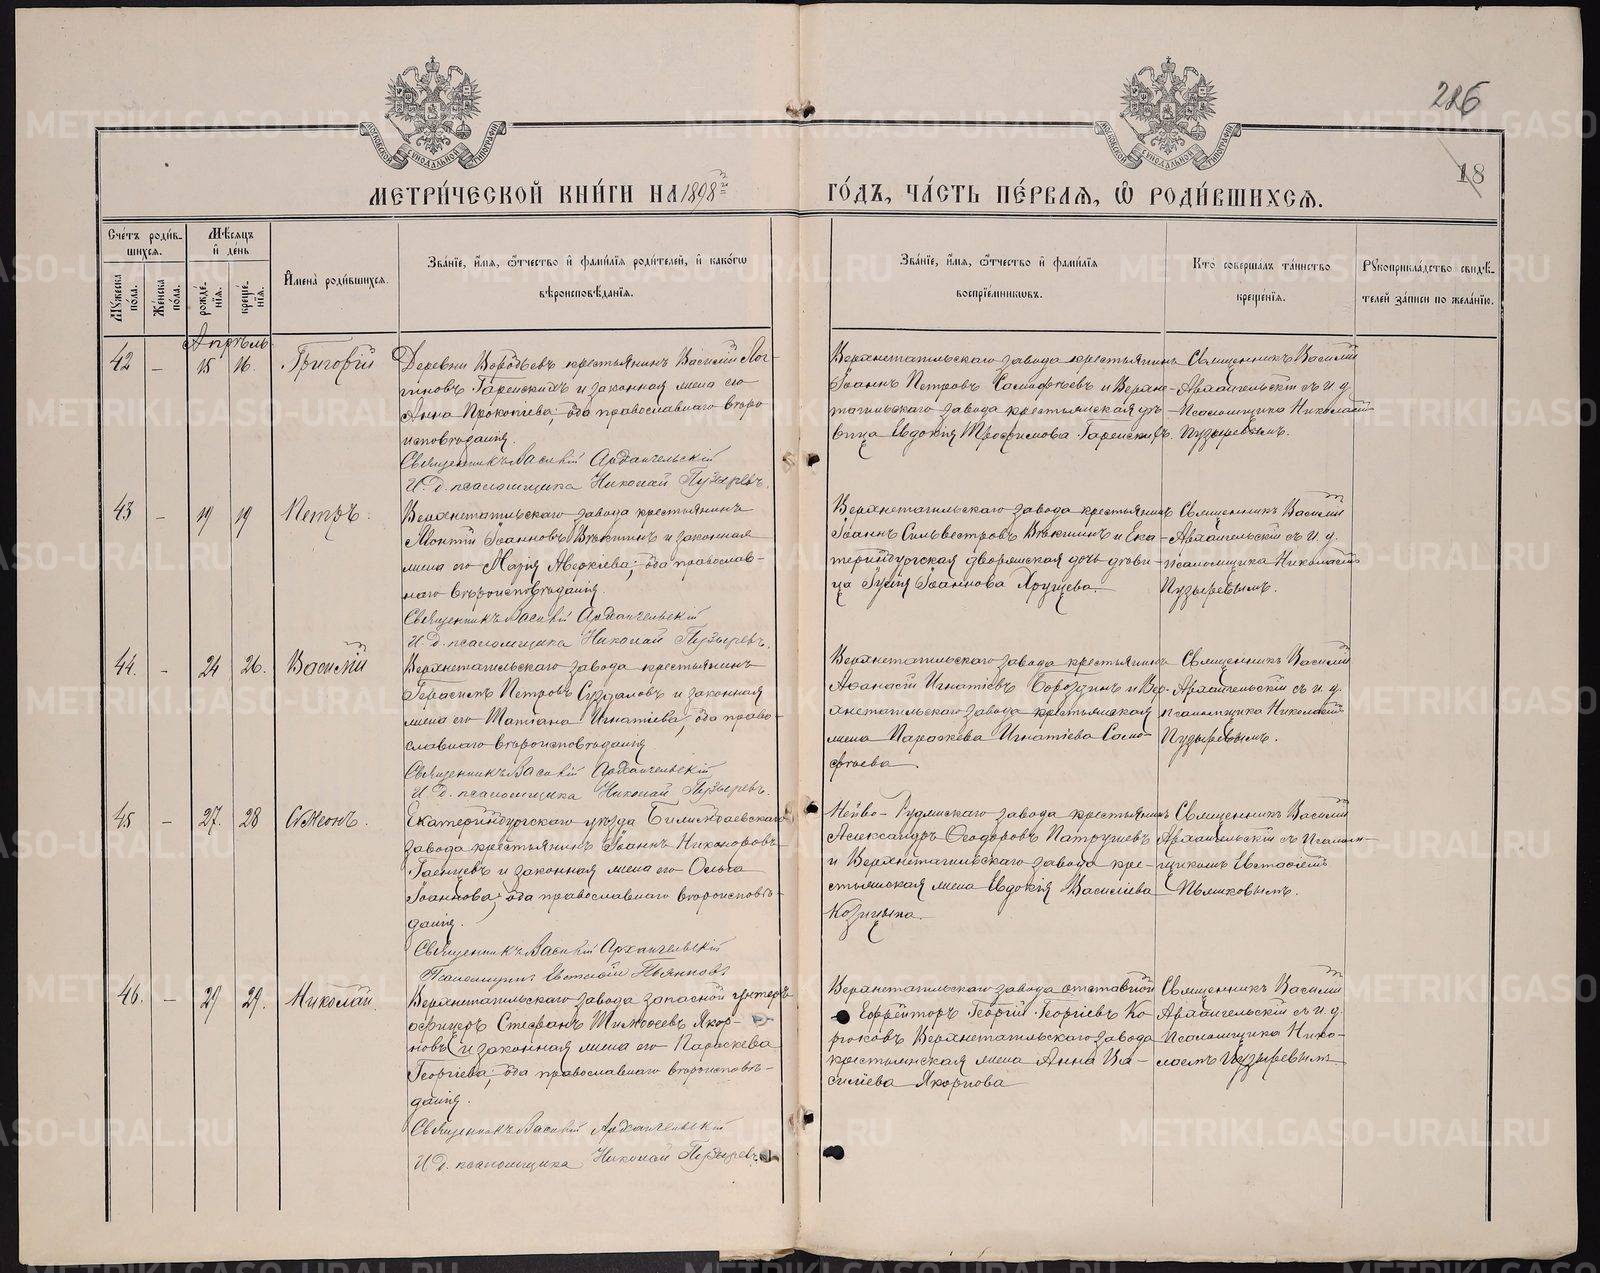 226
18
МОСКОВСКОЙ СѴНОДАЛЬНОЙ ТИПОГРАФІИ
МОСКОВСКОЙ СѴНОДАЛЬНОЙ ТИПОГРАФІИ
МЕТРИ́ЧЕСКОЙ КНИ́ГИ НА 1898 й
ГО́ДЪ, ЧА́СТЬ ПЕ́РВАѦ, Ѡ РОДИ́ВШИХСѦ.
Сче́тъ роди́в-
шихся.
Му́жеска по́ла.
Же́нска по́ла.
Мѣ́сяцъ и де́нь
рожде́-нія.
креще́-нія.
Имена̀ роди́вшихся.
Зва́ніе, и́мя, ѻ́тчество и фами́лія роди́телей, и како́гѡ
вѣроисповѣ́данія.
Зва́ніе, и́мя, ѻ́тчество и фами́лія
воспріе́мниковъ.
Кто̀ соверша́лъ та́инство
креще́нія.
Рꙋкоприкла́дство свидѣ́-
телей за́писи по жела́нію.
Апрѣль
42 – 15 16. Григорій
Деревни Воробьевъ крестьянинъ Василій Лог-
гиновъ Гаренскихъ и законная жена его
Анна Прокопіева; оба православнаго вѣро
исповѣданія.
Священникъ Василій Архангельскій
И. д. псаломщика Николай Пузыревъ.
Верхнетагильскаго завода крестьянинъ
Іоаннъ Петровъ Самофѣевъ и Верхне-
тагильскаго завода крестьянская дѣ-
вица Евдокія Трофимова Гаренскихъ.
Священникъ Василій
Архангельскій съ и. д.
Псаломщика Николаемъ
Пузыревымъ.
43 – 19 19 Петръ.
Верхнетагильскаго завода крестьянинъ
Іоанновъ и законная
жена его Марія Аверкіева; оба православ-
наго вѣроисповѣданія.
Священникъ Василій Архангельскій
И. д. псаломщика Николай Пузыревъ.
Верхнетагильскаго завода крестьянинъ
Іоаннъ Сильвестровъ и Ека-
теринбургская дворянская дочь дѣви-
ца Іоаннова Хрущева.
Священникъ Василій
Архангельскій съ и. д.
псаломщика Николаемъ
Пузыревымъ.
44. – 24 26. Василій
Верхнетагильскаго завода крестьянинъ
Герасимъ Петровъ Суздаловъ и законная
жена его Татіана Игнатіева; оба право-
славнаго вѣроисповѣданія
Священникъ Василій Архангельскій
И. д. псаломщика Николай Пузыревъ.
Верхнетагильскаго завода крестьянинъ
Аѳанасій Игнатіевъ Бороздинъ и Вер-
хнетагильскаго завода крестьянская
жена Параскева Игнатіева Само-
фѣева.
Священникъ Василій
Архангельскій съ и. д.
псаломщика Николаемъ
Пузыревымъ.
45 – 27. 28 Сѵмеонъ.
Екатеринбургскаго уѣзда Билимбаевскаго
завода крестьянинъ Іоаннъ Никоноровъ
и законная жена его Ольга
Іоаннова; оба православнаго вѣроисповѣ-
данія.
Священникъ Василій Архангельскій
Псаломщикъ Евстафій Пьянковъ
Нейво-Рудянскаго завода крестьянинъ
Александръ Ѳеодоровъ Патрушевъ
и Верхнетагильскаго завода кре-
стьянская жена Евдокія Василіева
Козицына.
Священникъ Василій
Архангельскій съ Псалом-
щикомъ Евстафіемъ
Пьянковымъ.
46. – 29 29. Николай
Верхнетагильскаго завода запасной унтеръ
офицеръ Стефанъ Тимоѳеевъ Якор-
новъ и законная жена его Параскева
Георгіева; оба православнаго вѣроисповѣ-
данія.
Священникъ Василій Архангельскій
И. д. псаломщика Николай Пузыревъ.
Верхнетагильскаго завода отставной
Ефрейторъ Георгій Георгіевъ Ко-
рюковъ Верхнетагильскаго завода
крестьянская жена Анна Ва-
силіева Якорнова
Священникъ Василій
Архангельскій съ и. д.
Псаломщика Нико-
лаемъ Пузыревымъ